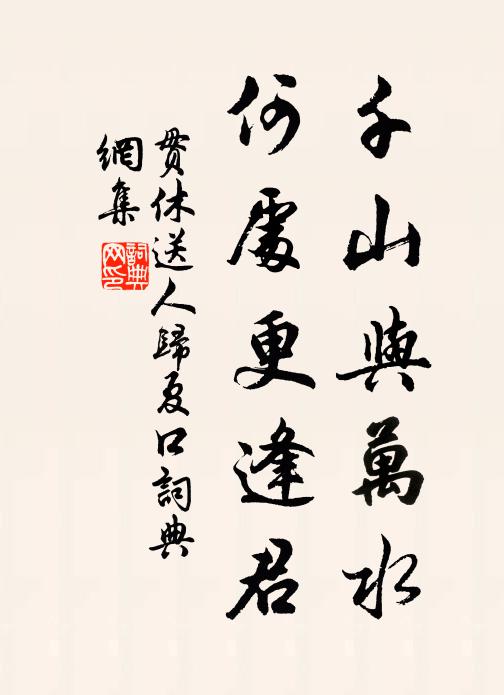 千山與萬水
何處更逢君
貫休送人歸夏口詞典
網集
詞典
网印